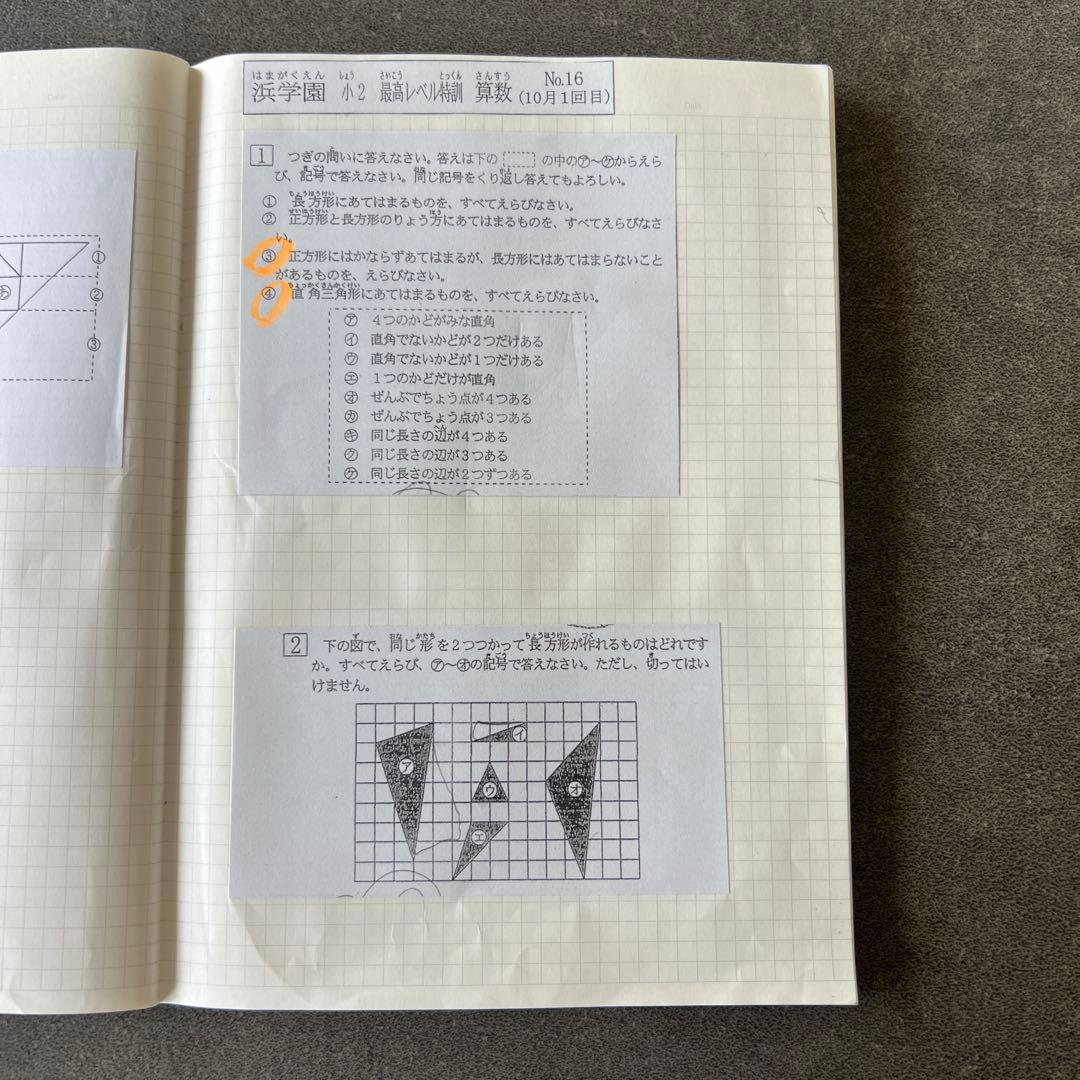 はまがくえん しょう さいこう とっくん さんすう
浜学園 小2 最高レベル特訓 算数 No.16 (10月1回目)
1 つぎの問いに答えなさい。答えは下の の中の㋐～㋘からえら
び、記号で答えなさい。同じ記号をくり返し答えてもよろしい。
① 長方形にあてはまるものを、すべてえらびなさい。
② 正方形と長方形のりょう方にあてはまるものを、すべてえらびなさ
い。
③ 正方形にはかならずあてはまるが、長方形にはあてはまらないこと
があるものを、えらびなさい。
④ 直角三角形にあてはまるものを、すべてえらびなさい。
㋐ 4つのかどがみな直角
㋑ 直角でないかどが2つだけある
㋒ 直角でないかどが1つだけある
㋓ 1つのかどだけが直角
㋔ ぜんぶでちょう点が4つある
㋕ ぜんぶでちょう点が3つある
㋖ 同じ長さの辺が4つある
㋗ 同じ長さの辺が3つある
㋘ 同じ長さの辺が2つずつある
2 下の図で、同じ形を2つつかって長方形が作れるものはどれです
か。すべてえらび、㋐～㋔の記号で答えなさい。ただし、切ってはい
けません。
㋐
㋑
㋒
㋓
㋔
①
②
③